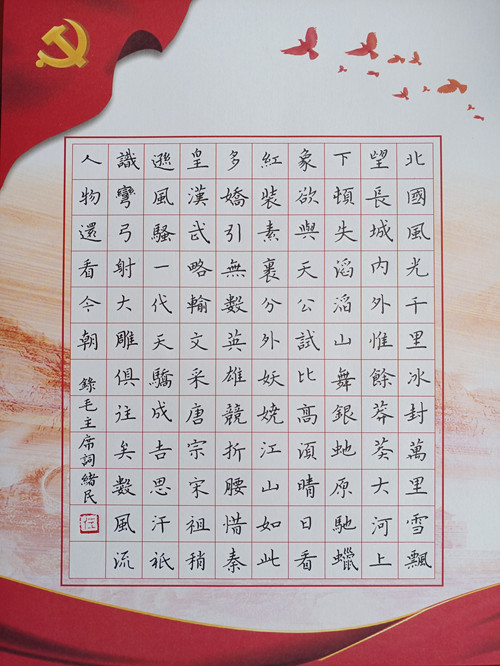 北國風光千里冰封萬里雪飄
望長城內外惟餘莽莽大河上
下頓失滔滔山舞銀虵原馳蠟
象欲與天公試比高須晴日看
紅裝素裹分外妖嬈江山如此
多嬌引無數英雄競折腰惜秦
皇漢武略輸文采唐宗宋祖稍
遜風騷一代天驕成吉思汗祇
識彎弓射大雕俱往矣數風流
人物還看今朝
錄毛主席詞緒民